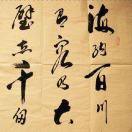 海納百川
有容乃大
壁立千仞